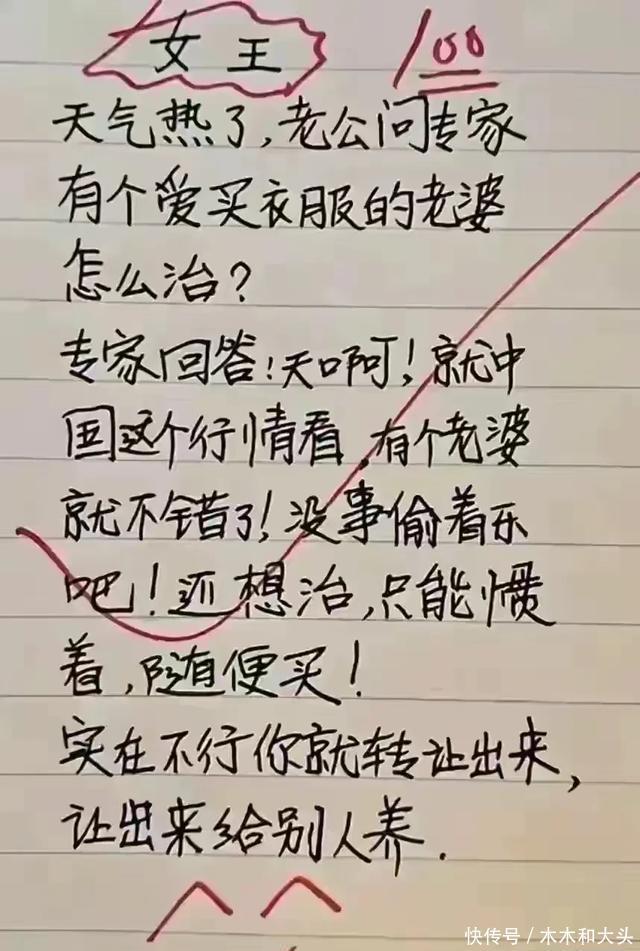 女王 100
天气热了,老公问专家
有个爱买衣服的老婆
怎么治?
专家回答!天啊!就中
国这个行情看,有个老婆
就不错了!没事偷着乐
吧!还想治,只能惯
着,随便买!
实在不行你就转让出来,
让出来给别人养.
快传号/木木和大头